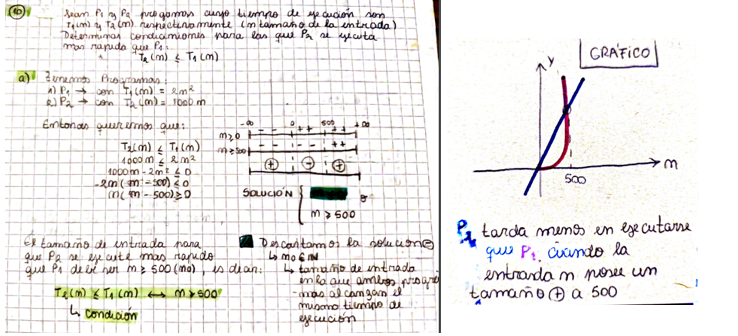 (1b) Sean P₁ y P₂ programas cuyo tiempo de ejecución son
T₁(m) y T₂(m) respectivamente (m tamaño de la entrada)
Determinar condiciones para las que P₂ se ejecuta
mas rapido que P₁:
T₂(m) ≤ T₁(m)
a) Tenemos Programas:
1) P₁ → con T₁(m) = 2m²
2) P₂ → con T₂(m) = 1000m
Entonces queremos que:
T₂(m) ≤ T₁(m)
1000m ≤ 2m²
1000m - 2m² ≤ 0
-2m(m - 500) ≤ 0
m(m - 500) ≥ 0
-∞ 0 500 +∞
m≥0 - - ++ ++
m≥500 - - - - ++
+ - +
SOLUCIÓN {
m ≥ 500
El tamaño de entrada para
que P₂ se ejecute mas rapido
que P₁ debe ser m ≥ 500 (m₀), es decir:
T₂(m) ≤ T₁(m) ⟷ m ≥ 500
↳ Condición
Descartamos la solución ⊖
↳ m₀ ∈ ℕ
↳ tamaño de entrada
en la que ambos progra
-mas alcanzan el
mismo tiempo de
ejecución
GRÁFICO
y
m
500
P₂ tarda menos en ejecutarse
que P₁, cuando la
entrada m posee un
tamaño ⊕ a 500